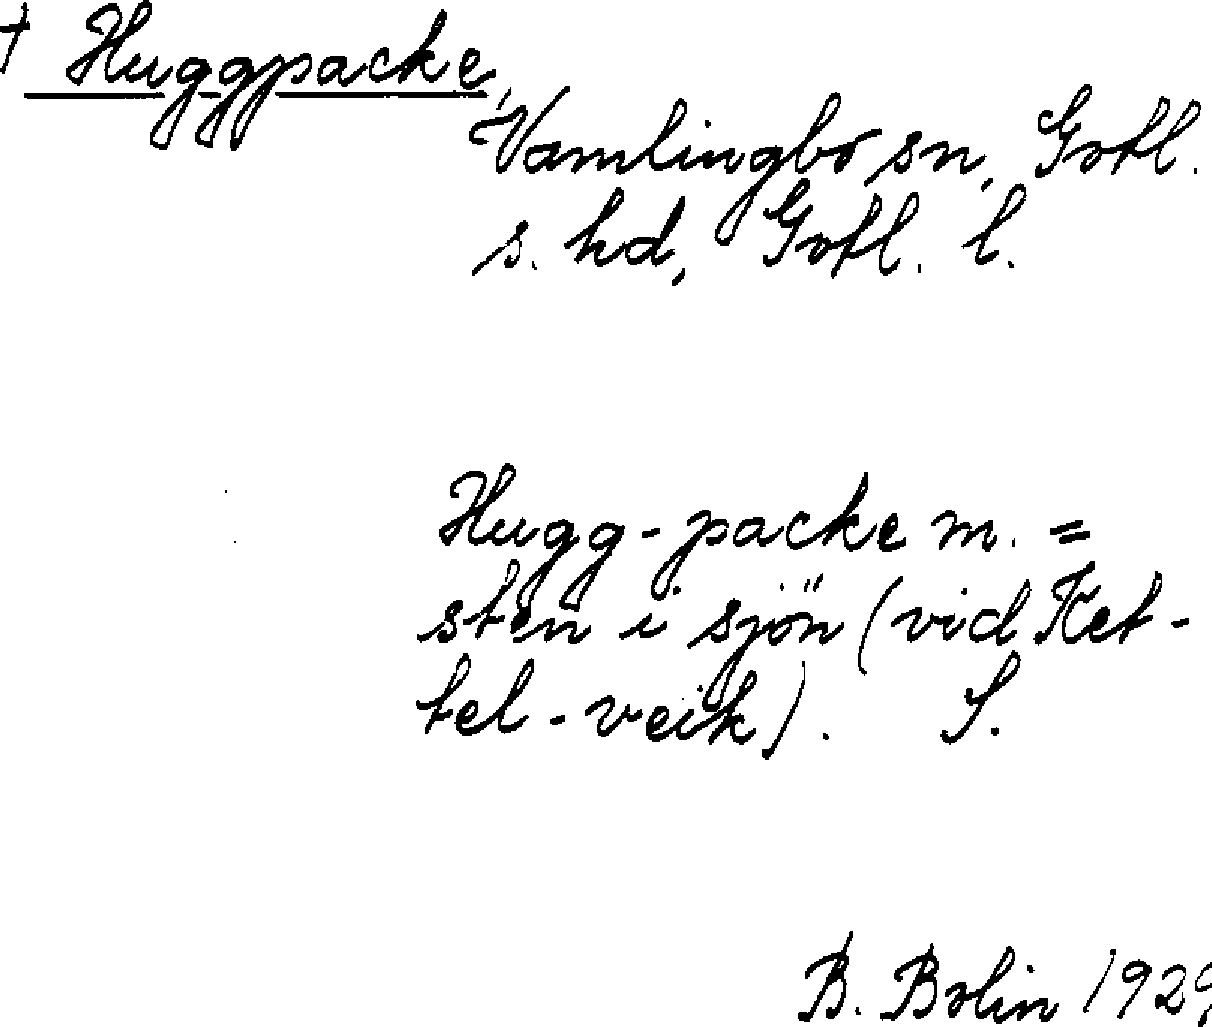 † Huggpacke,
Vamlingbo sn, Gotl.
s. hd, Gotl. l.
Hugg-packe m. =
sten i sjön (vid Ket-
tel-veik). S.
B. Bolin 1929